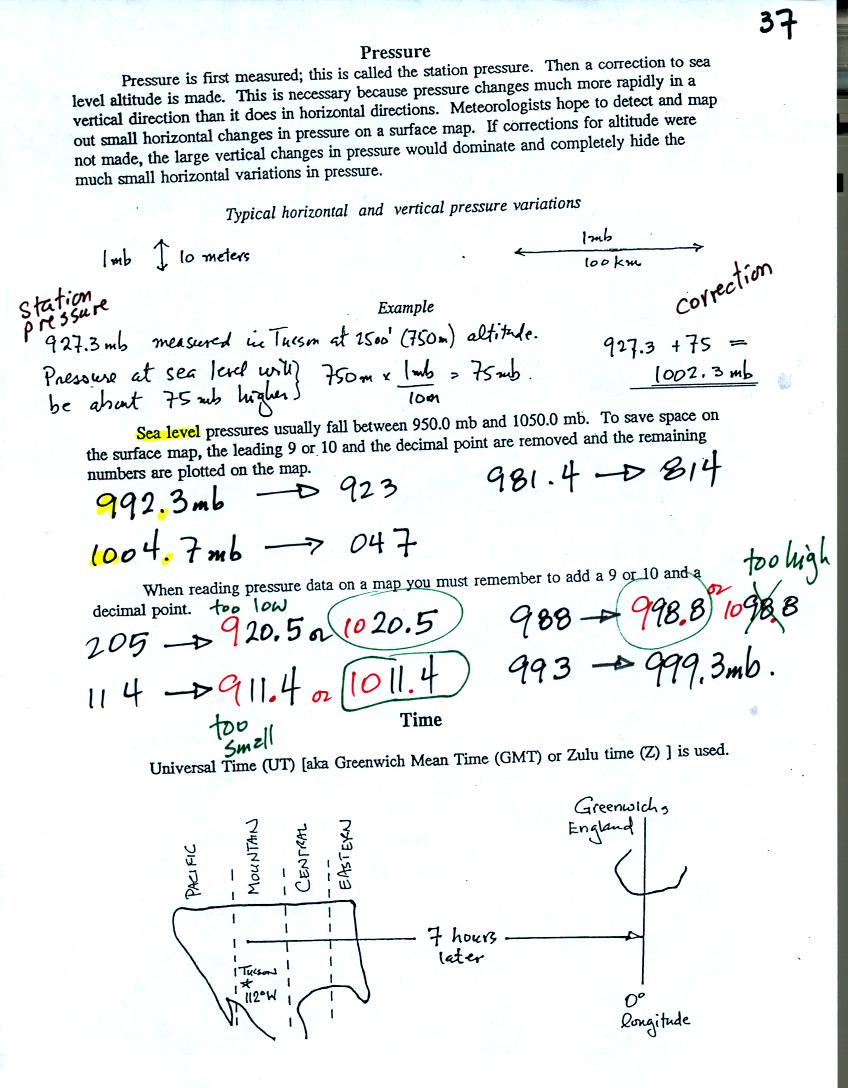 37
Pressure
Pressure is first measured; this is called the station pressure. Then a correction to sea
level altitude is made. This is necessary because pressure changes much more rapidly in a
vertical direction than it does in horizontal directions. Meteorologists hope to detect and map
out small horizontal changes in pressure on a surface map. If corrections for altitude were
not made, the large vertical changes in pressure would dominate and completely hide the
much small horizontal variations in pressure.
Typical horizontal and vertical pressure variations
1mb ↕ 10 meters
1mb
100 km
station
pressure
correction
Example
927.3 mb measured in Tucson at 2500' (750m) altitude.
927.3 + 75 =
1002.3 mb
Pressure at sea level will
be about 75 mb higher
} 750m x 1mb/10m = 75mb.
Sea level pressures usually fall between 950.0 mb and 1050.0 mb. To save space on
the surface map, the leading 9 or 10 and the decimal point are removed and the remaining
numbers are plotted on the map.
992.3mb → 923
981.4 → 814
1004.7mb → 047
When reading pressure data on a map you must remember to add a 9 or 10 and a
decimal point.
too low
too high
205 → 920.5 or 1020.5
988 → 998.8 or 1098.8
114 → 911.4 or 1011.4
993 → 999.3mb.
too
small
Time
Universal Time (UT) [aka Greenwich Mean Time (GMT) or Zulu time (Z) ] is used.
PACIFIC
MOUNTAIN
CENTRAL
EASTERN
Greenwich,
England
7 hours
later
Tucson
*
112°W
0°
longitude